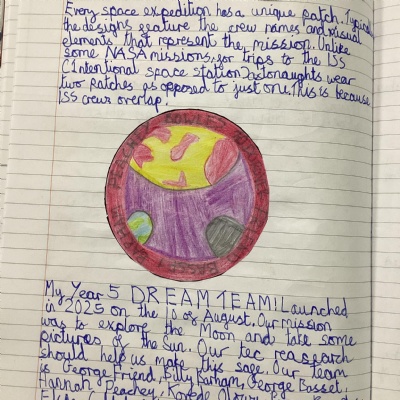 Every space expedition has a unique patch. Typically
the designs feature the crew names and visual
elements that represent the mission. Unlike
some NASA missions, for trips to the ISS
(Intentional space station) astonaughts wear
two patches as opposed to just one. This is because
ISS crews overlap!
PEACHEY BOWLES
My Year 5 DREAM TEAM! Launched
in 2025 on the 10 of August. Our mission
was to explore the Moon and take some
pictures of the Sun. Our tec reasearch
should help us make this safe. Our team
is George Friend, Billy Barham, George Basset,
Hannah Peachey,